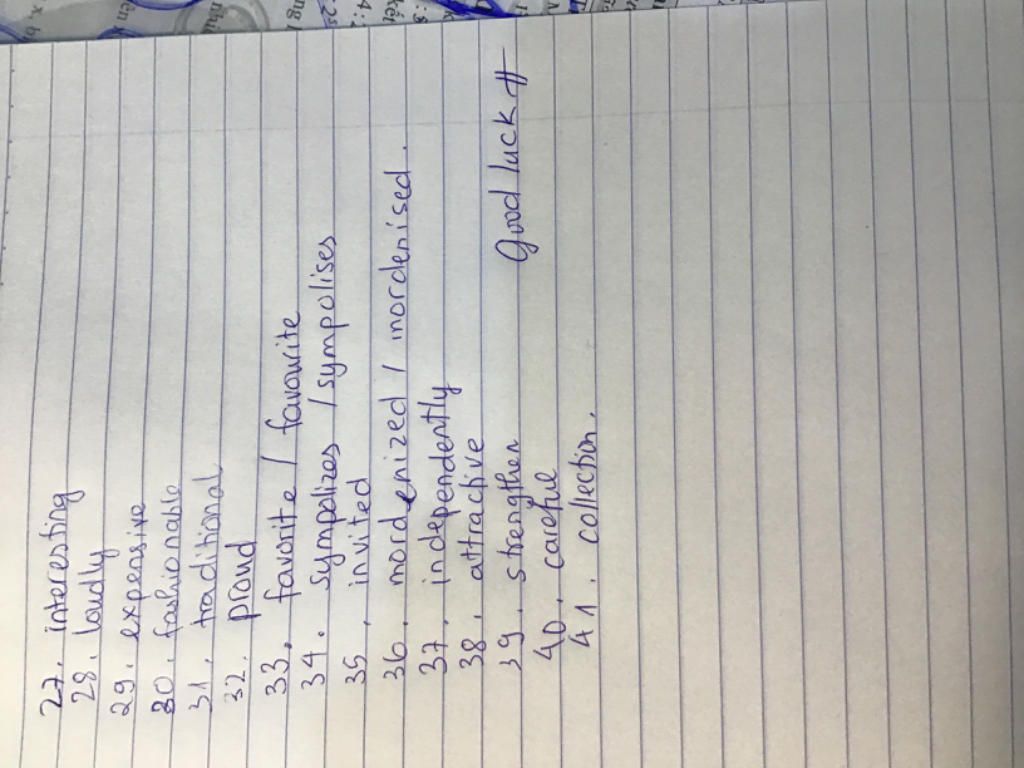 27. interesting
28. loudly
29. expensive
30. fashionable
31. traditional
32. proud
33. favorite / favourite
34. sympolizes / sympolises
35. invited
36. mordenized / mordenised.
37. independently
38. attractive
39. strengthen
40. careful
41. collection.
Good luck #